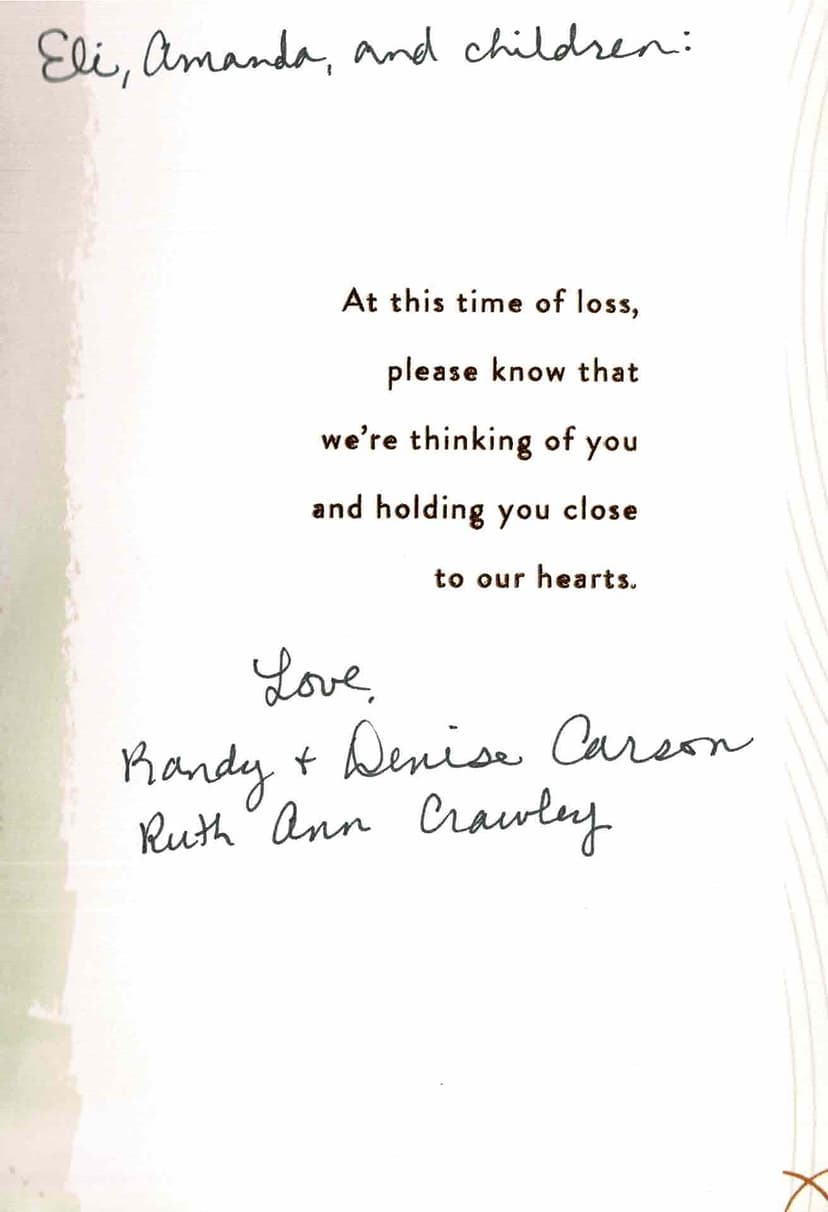 Eli, Amanda, and children:
At this time of loss,
please know that
we're thinking of you
and holding you close
to our hearts.
Love,
Randy + Denise Carson
Ruth Ann Crawley